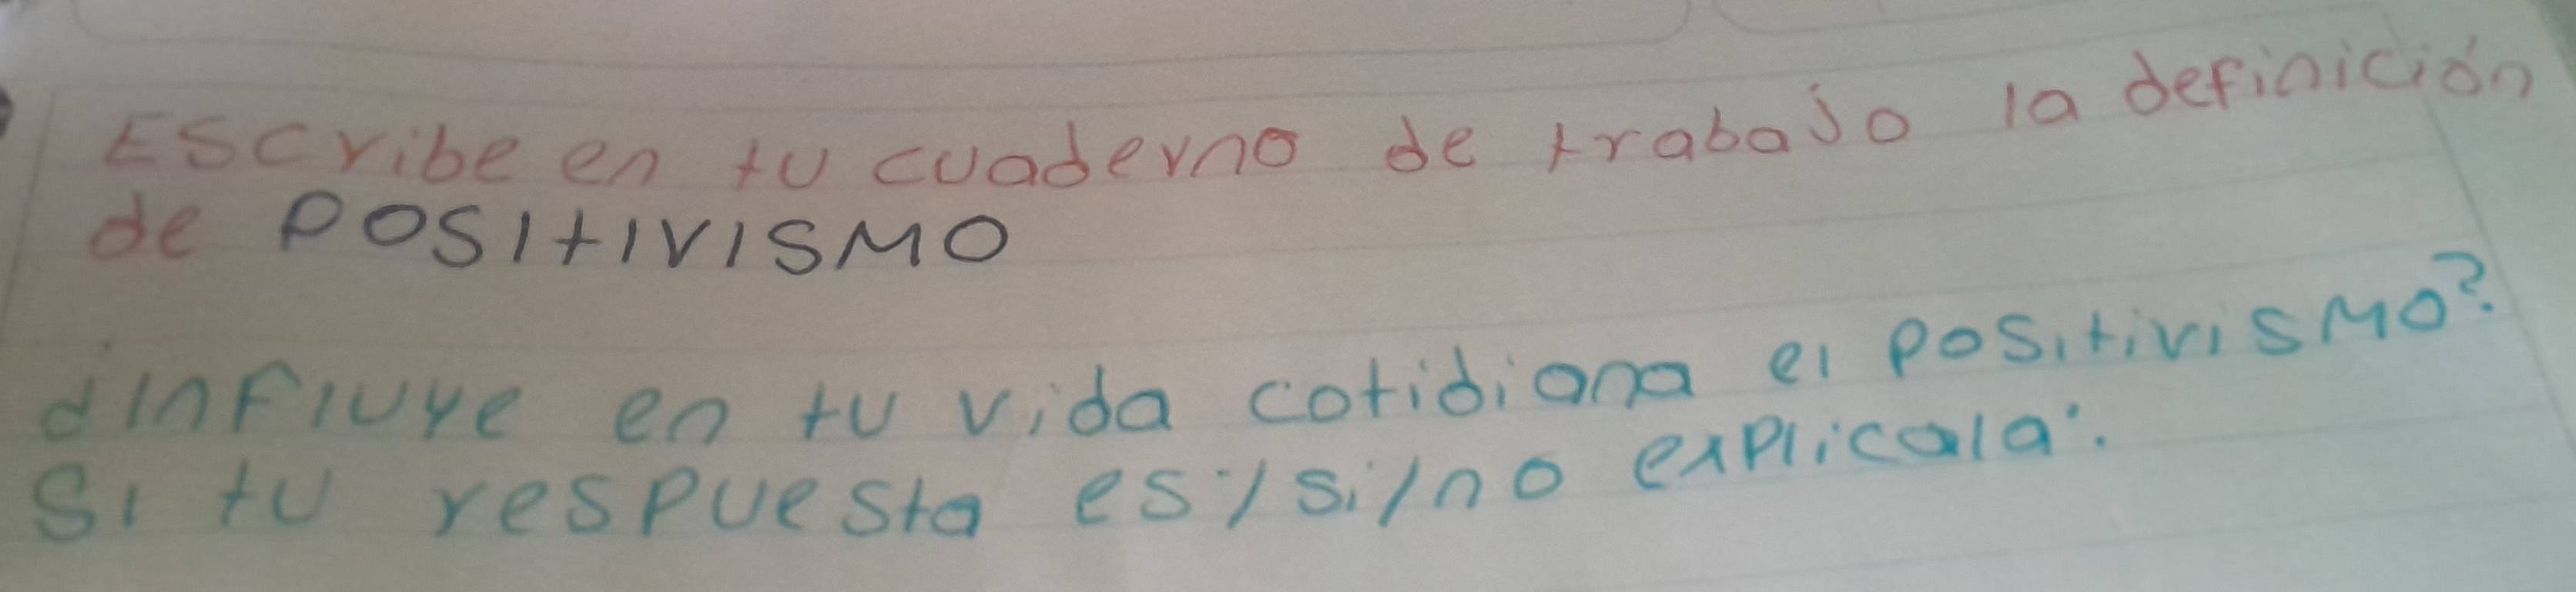 Escribe en tu cuaderno de trabajo la definición
de POSITIVISMO
¿Influye en tu vida cotidiana el positivismo?
Si tu respuesta es:/si/no explicala:.